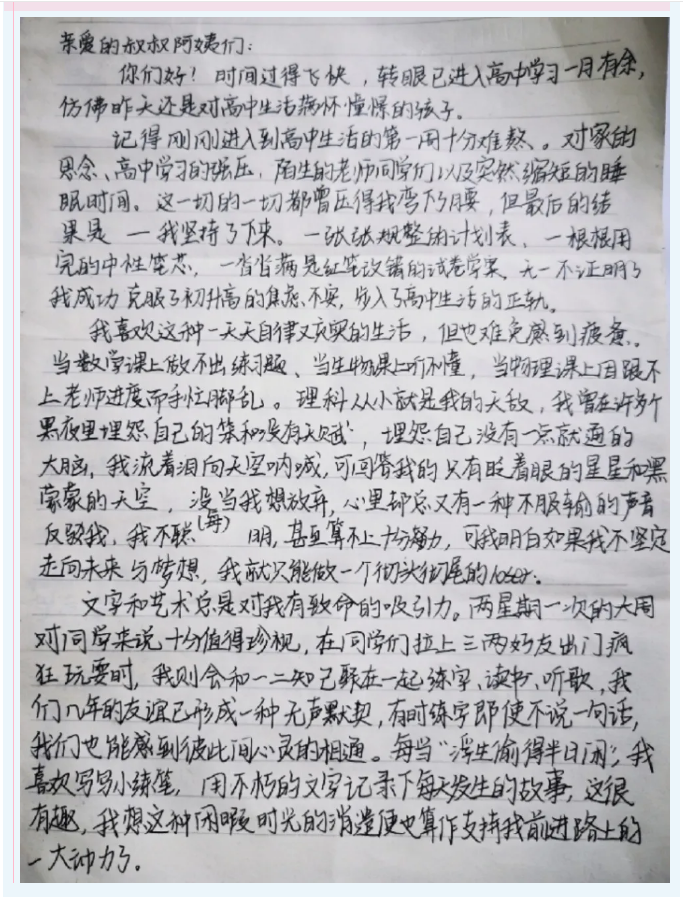 亲爱的叔叔阿姨们：
你们好！时间过得飞快，转眼已进入高中学习一月有余，
仿佛昨天还是对高中生活满怀憧憬的孩子。
记得刚刚进入到高中生活的第一周十分难熬、。对家的
思念、高中学习的强压，陌生的老师同学们以及突然缩短的睡
眠时间。这一切的一切都曾压得我弯下了腰，但最后的结
果是 — 我坚持了下来。一张张规整的计划表、一根根用
完的中性笔芯，一沓沓满是红笔改错的试卷学案、无一不证明了
我成功克服了初升高的焦虑、不安，步入了高中生活的正轨。
我喜欢这种一天天自律又充实的生活，但也难免感到疲惫。
当数学课上做不出练习题、当生物课上听不懂，当物理课上因跟不
上老师进度而手忙脚乱。理科从小就是我的天敌，我曾在许多个
黑夜里埋怨自己的笨和“没有天赋”，埋怨自己没有一点就通的
大脑，我流着泪向天空呐喊，可回答我的只有眨着眼的星星和黑
蒙蒙的天空，没当我想放弃，心里却总又有一种不服输的声音
反驳我，我不聪(每)明，甚至算不上十分努力，可我明白如果我不坚定
走向未来与梦想，我就只能做一个彻头彻尾的loser。
文字和艺术总是对我有致命的吸引力。两星期一次的大周
对同学来说十分值得珍视，在同学们拉上三两好友出门疯
狂玩耍时，我则会和一二知己聚在一起练字、读书、听歌，我
们几年的友谊已形成一种无声默契，有时练字即使不说一句话，
我们也能感到彼此间心灵的相通。每当“浮生偷得半日闲”，我
喜欢写写小练笔，用不朽的文字记录下每天发生的故事，这很
有趣，我想这种闲暇时光的消遣便也算作支持我前进路上的
一大动力了。